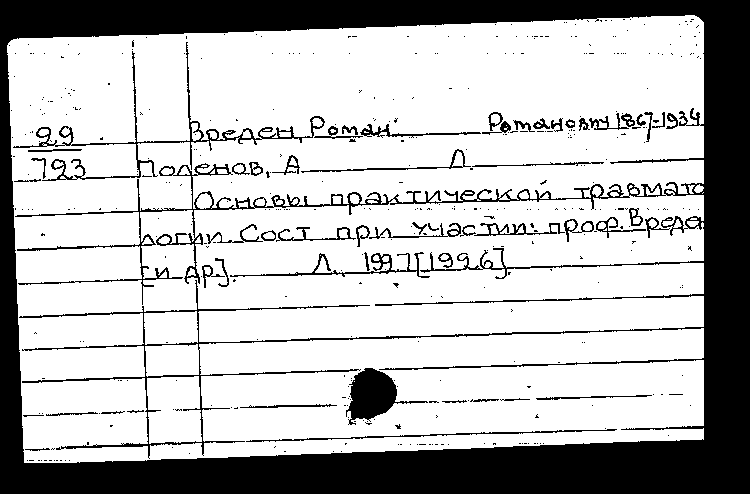 29 Вреден, Роман Романович 1867-1934
793 Поленов, А Л.
Основы практической травмато
логии. Сост при участии: проф. Вреде
[и др]. Л., 1997[1996]